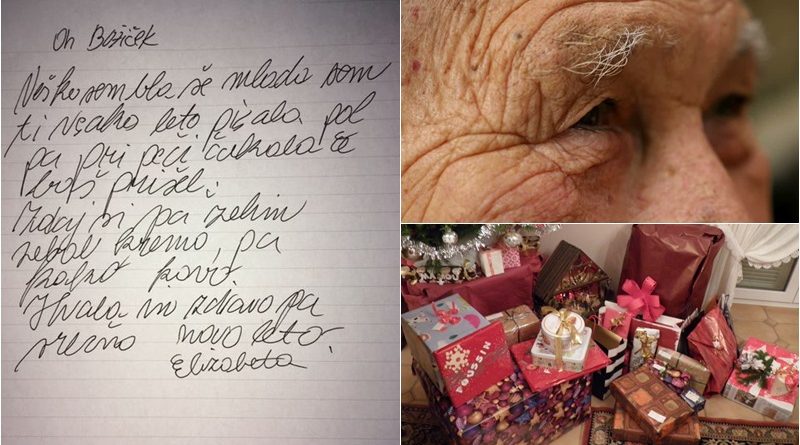 Oh Božiček
sem bla še mlada sem
ti vsako leto pisala pol
pa pri peči čakala če
boš prišel.
Zdaj si pa želim
kremo, pa
kavo
Hvala in zdravo pa
srečno novo leto.
Elizabeta
POUSSIN